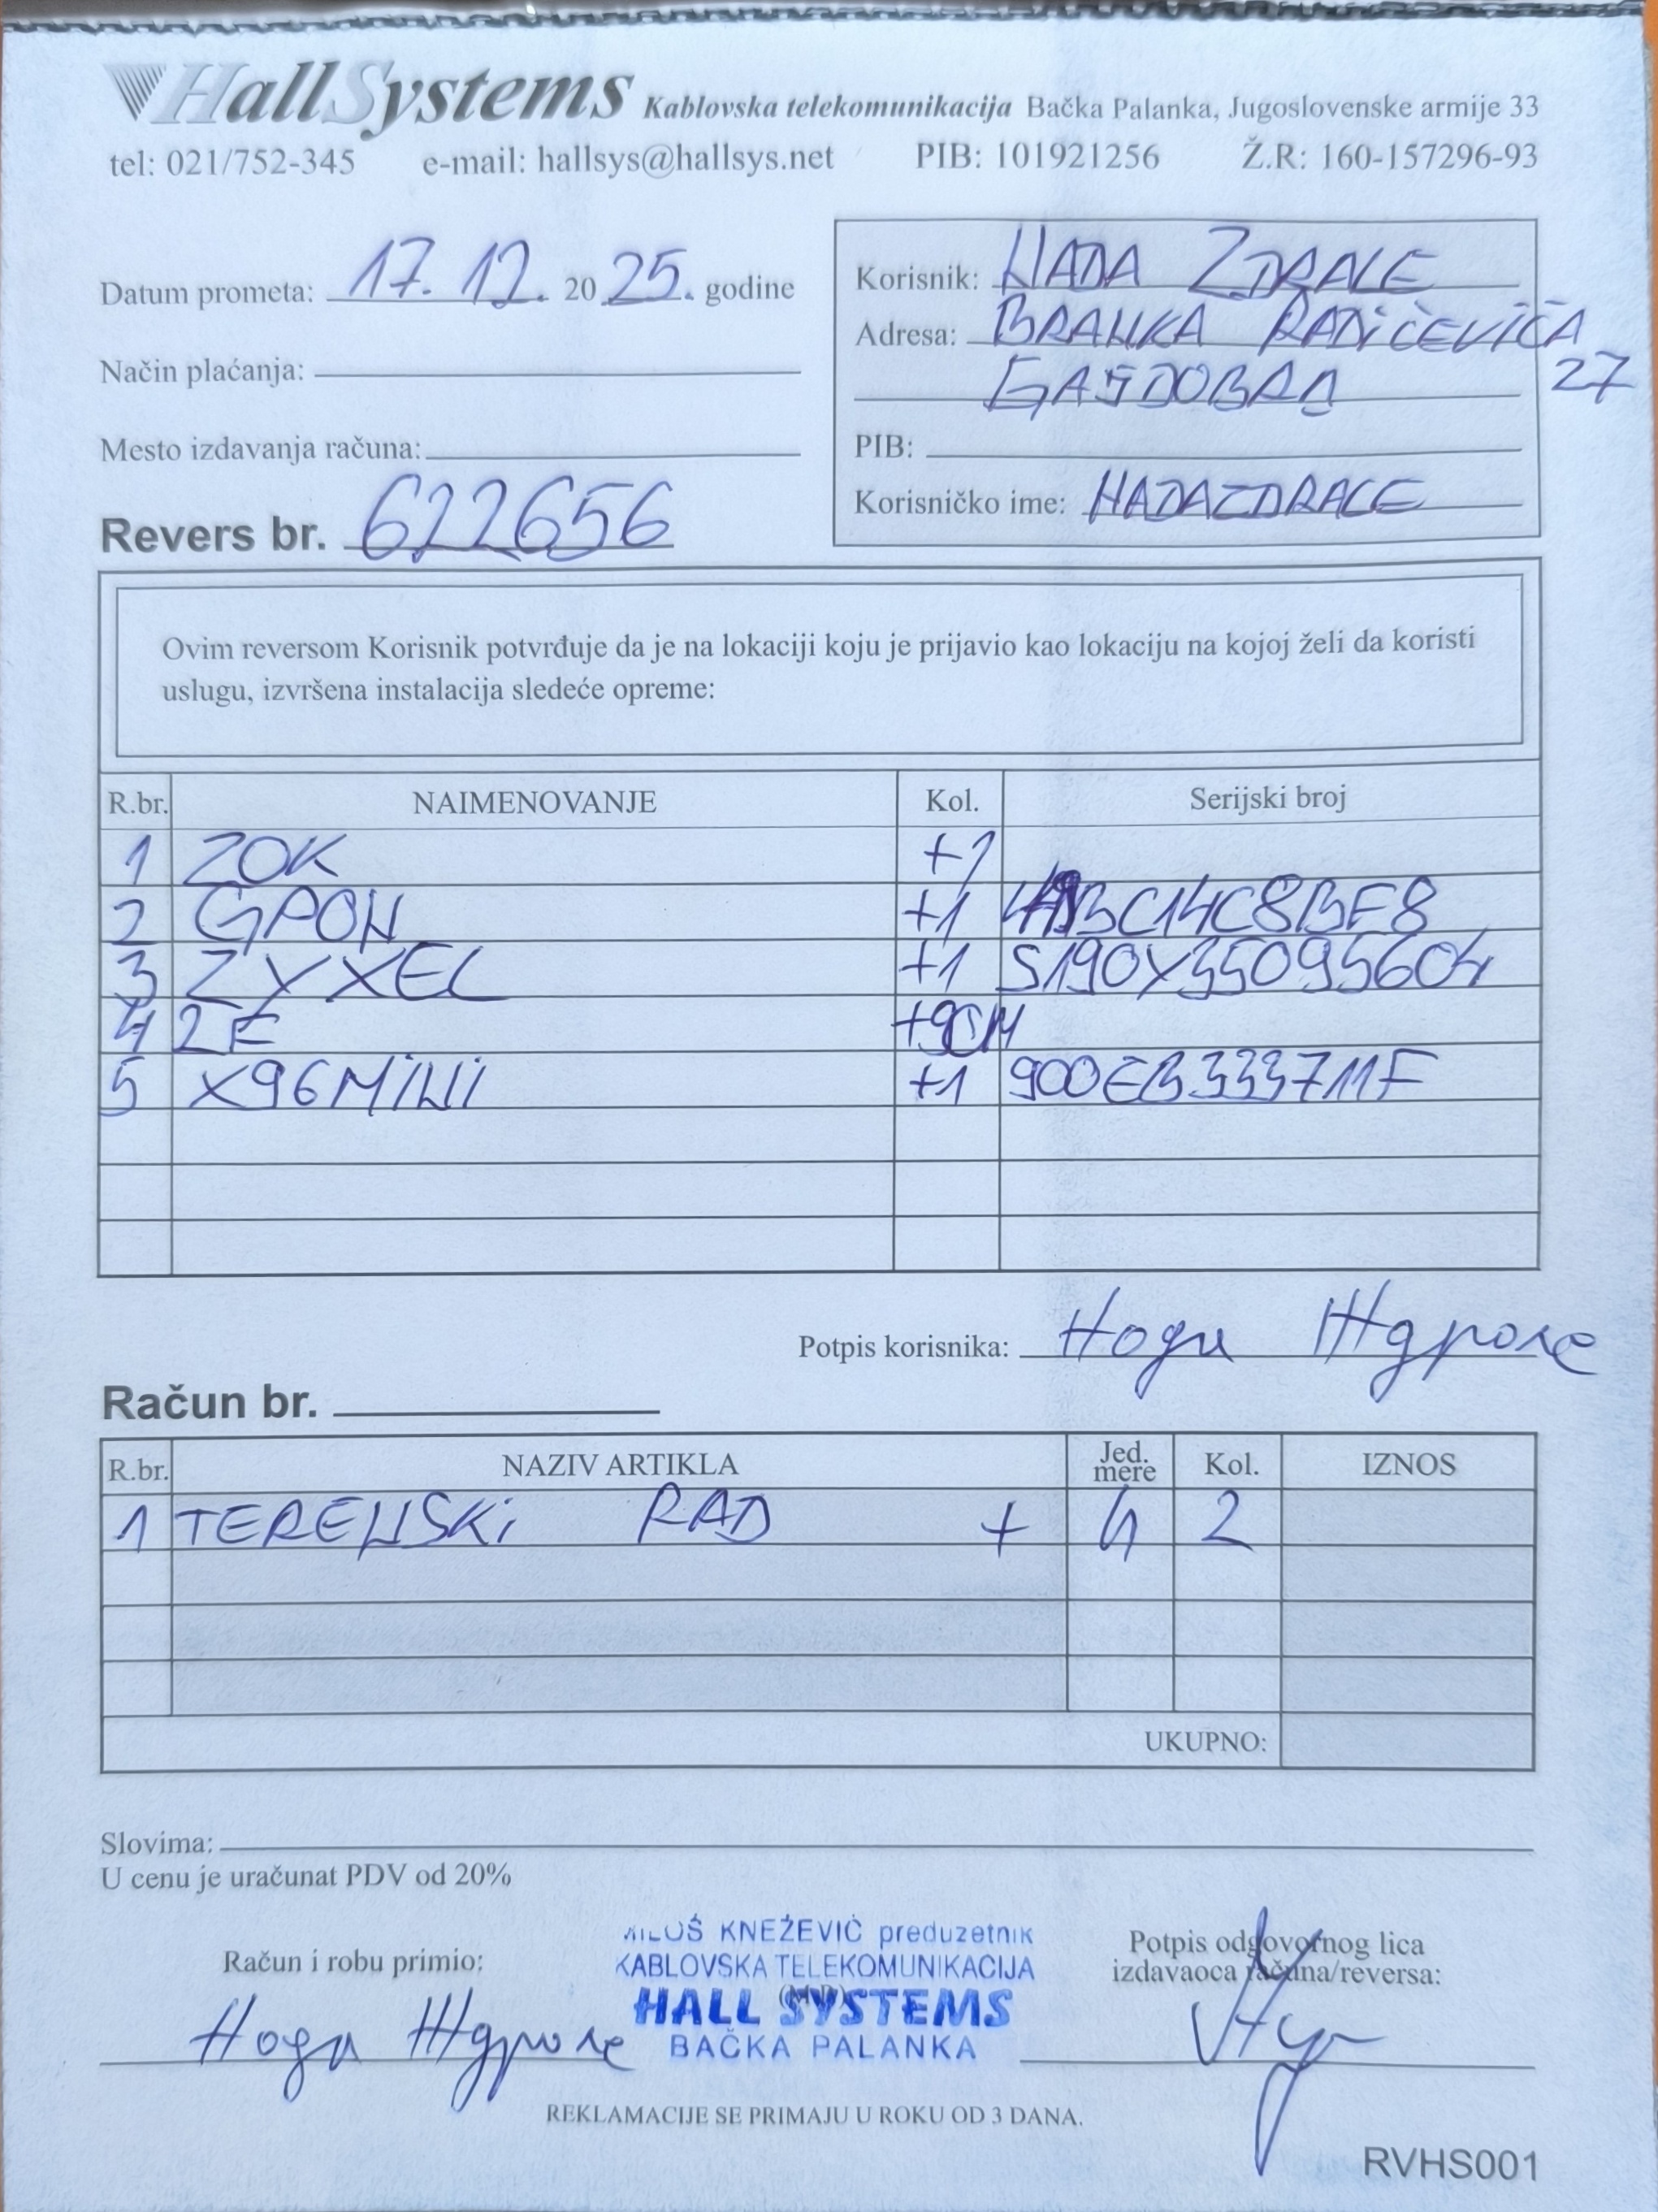 HallSystems Kablovska telekomunikacija Bačka Palanka, Jugoslovenske armije 33
tel: 021/752-345 e-mail: hallsys@hallsys.net PIB: 101921256 Ž.R: 160-157296-93
Datum prometa: 17. 12. 2025. godine
Način plaćanja:
Mesto izdavanja računa:
Revers br. 622656
Korisnik: NADA ZDRALE
Adresa: BRANKA RADIČEVIĆA
GAJDOBRA 27
PIB:
Korisničko ime: NADAZDRALE
Ovim reversom Korisnik potvrđuje da je na lokaciji koju je prijavio kao lokaciju na kojoj želi da koristi
uslugu, izvršena instalacija sledeće opreme:
R.br. NAIMENOVANJE Kol. Serijski broj
1 ZOK +1
2 GPON +1
3 ZYXEL +1 S190Y35095604
4 2F
5 X96MiNi +1 900EB333711F
Potpis korisnika: Нада Ждрале
Račun br.
R.br. NAZIV ARTIKLA Jed. mere Kol. IZNOS
1 TERENSKi RAD + h 2
UKUPNO:
Slovima:
U cenu je uračunat PDV od 20%
Račun i robu primio:
Нада Ждрале
MILOŠ KNEŽEVIĆ preduzetnik
KABLOVSKA TELEKOMUNIKACIJA
(M.P.)
HALL SYSTEMS
BAČKA PALANKA
Potpis odgovornog lica
izdavaoca računa/reversa:
REKLAMACIJE SE PRIMAJU U ROKU OD 3 DANA.
RVHS001